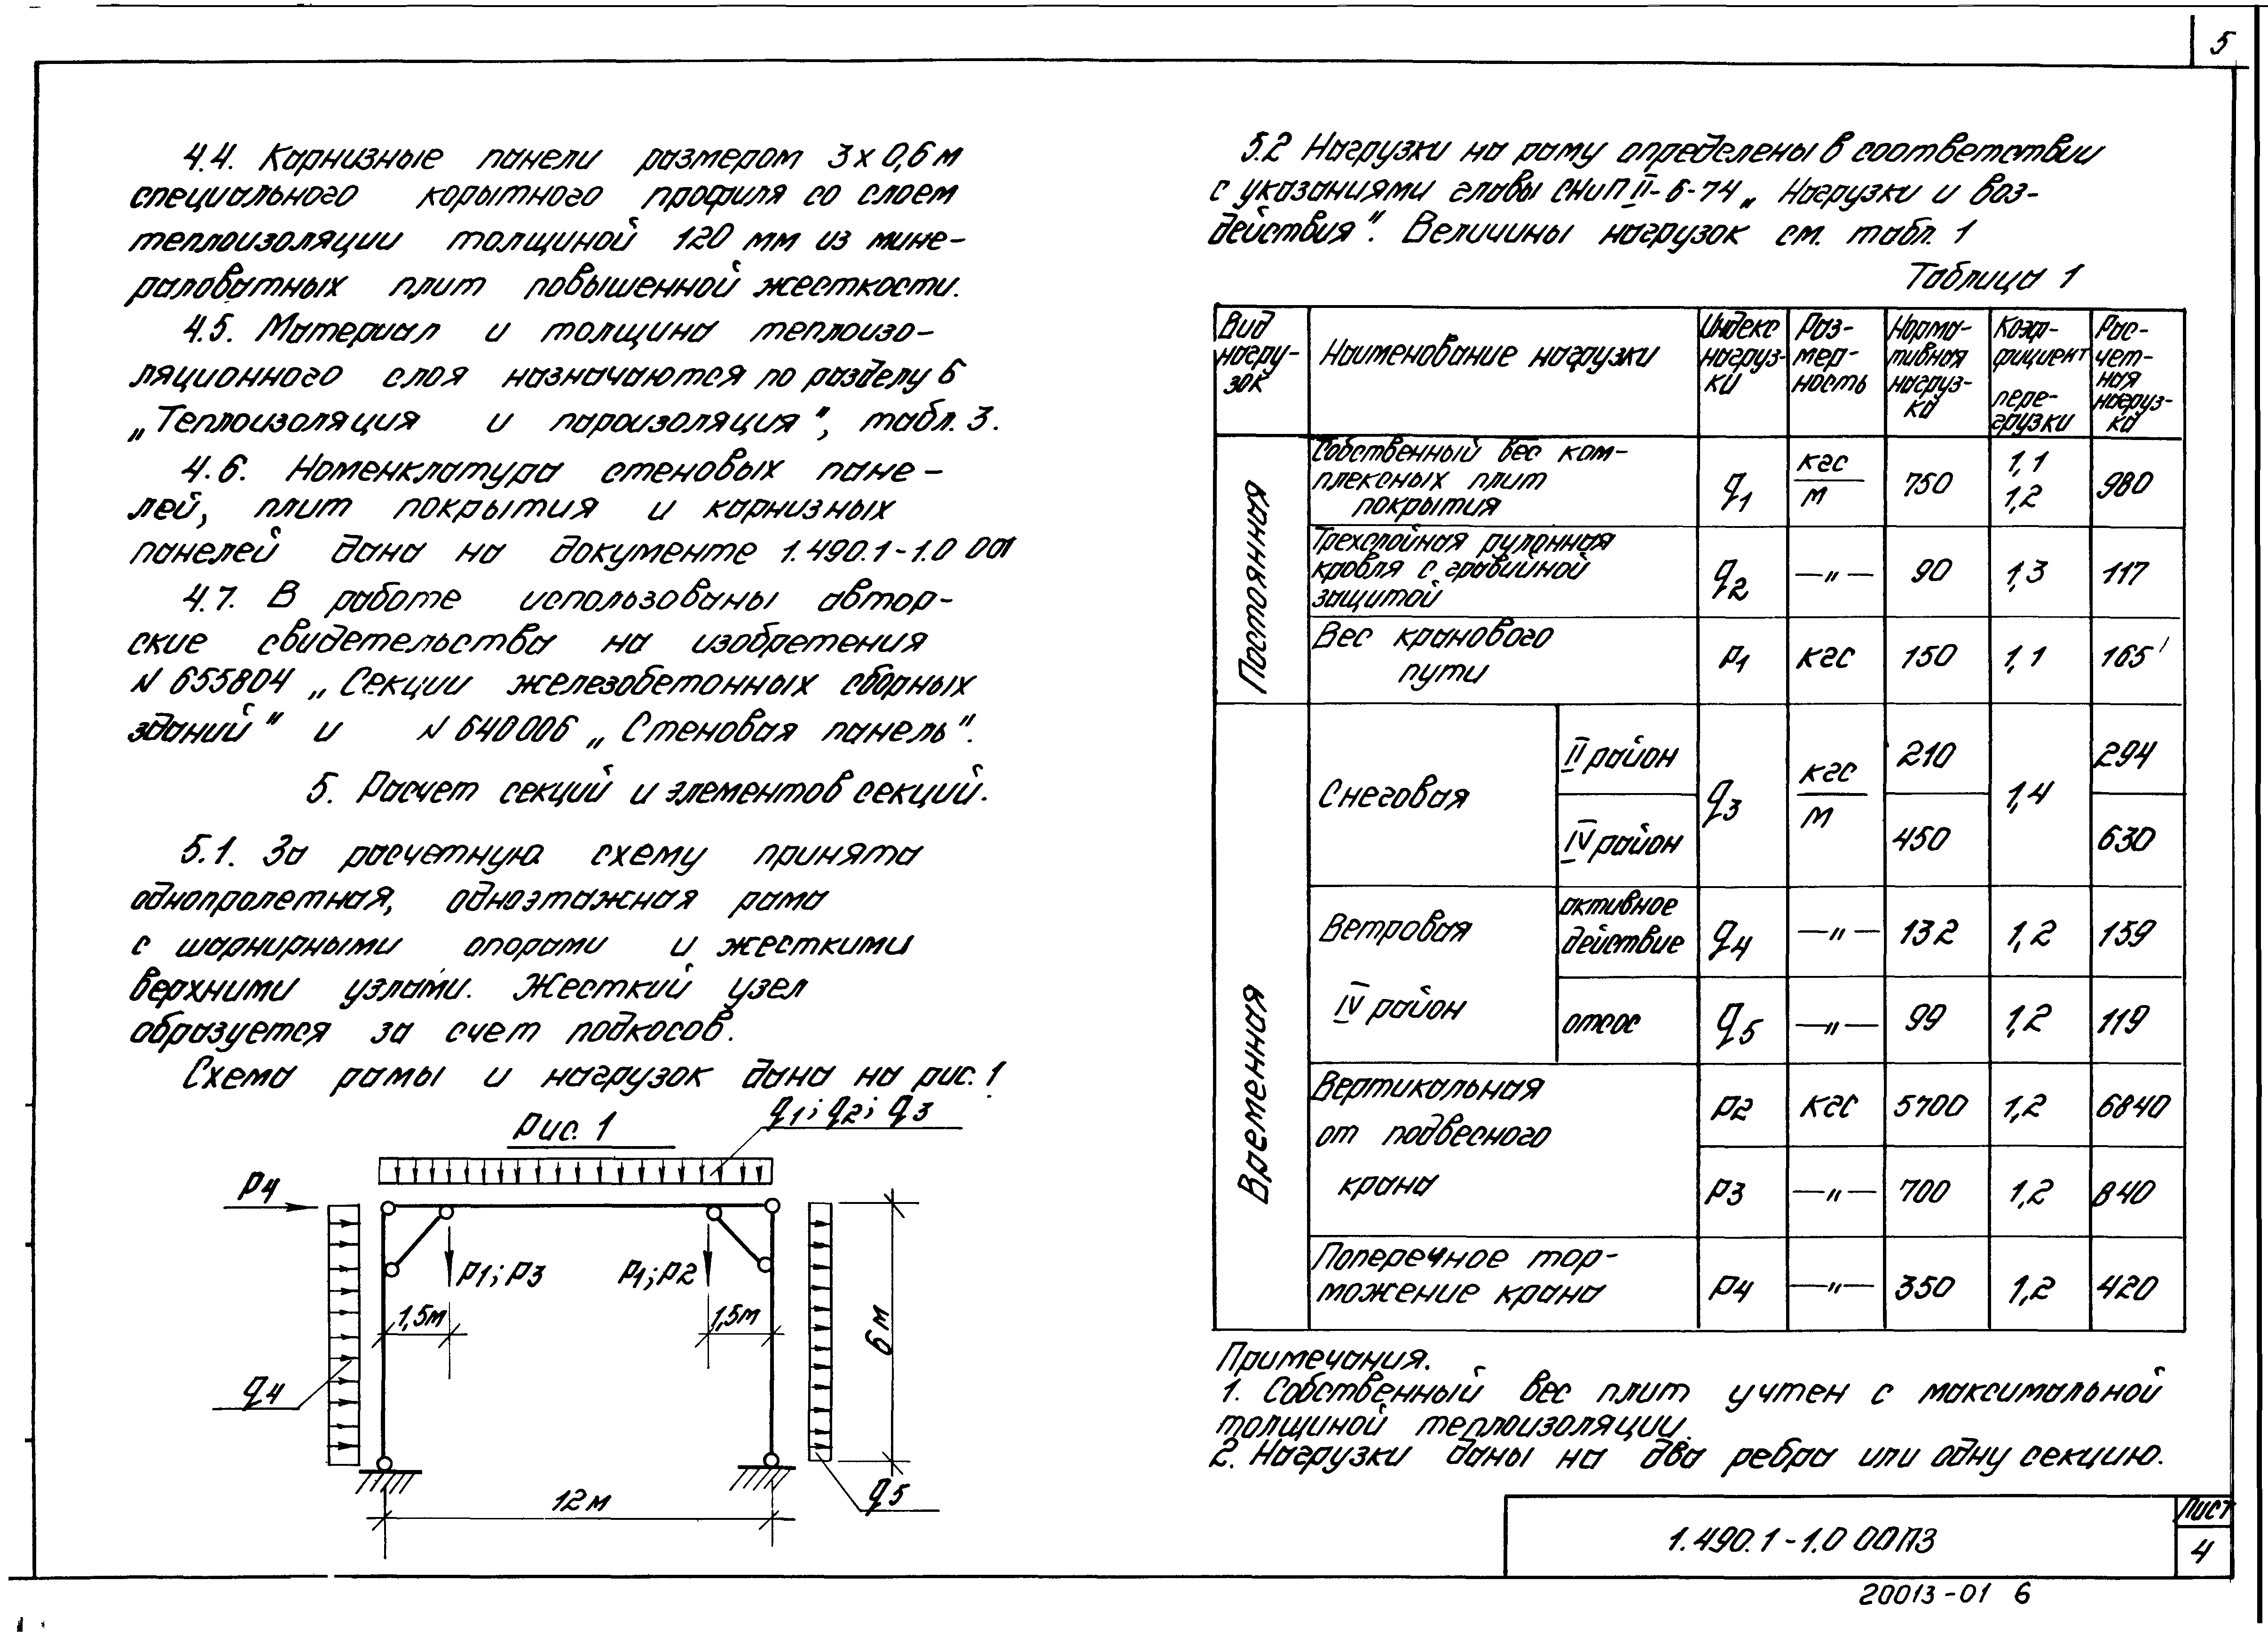 5
4.4. Карнизные панели размером 3 х 0,6 м
специального корытного профиля со слоем
теплоизоляции толщиной 120 мм из мине-
раловатных плит повышенной жесткости.
4.5. Материал и толщина теплоизо-
ляционного слоя назначаются по разделу 6
„Теплоизоляция и пароизоляция", табл. 3.
4.6. Номенклатура стеновых пане-
лей, плит покрытия и карнизных
панелей дана на документе 1.490.1-1.0 001
4.7. В работе использованы автор-
ские свидетельства на изобретения
N 655804 „Секции железобетонных сборных
зданий" и N 640006 „Стеновая панель".
5. Расчет секций и элементов секций.
5.1. За расчетную схему принята
однопролетная, одноэтажная рама
с шарнирными опорами и жесткими
верхними узлами. Жесткий узел
образуется за счет подкосов.
Схема рамы и нагрузок дана на рис. 1
Рис. 1
q1; q2; q3
P4
P1; P3
P1; P2
1,5м
1,5м
6 м
q4
q5
12 м
5.2 Нагрузки на раму определены в соответствии
с указаниями главы СНиП II-6-74 „Нагрузки и воз-
действия". Величины нагрузок см. табл. 1
Таблица 1
Вид нагру- зок
Наименование нагрузки
Индекс нагруз- ки
Раз- мер- ность
Норма- тивная нагруз- ка
Коэф- фициент пере- грузки
Рас- чет- ная нагруз- ка
Постоянная
Собственный вес ком-
плексных плит
покрытия
q1
кгс
м
750
1,1
1,2
980
Трехслойная рулонная
кровля с гравийной
защитой
q2
—"—
90
1,3
117
Вес кранового
пути
P1
кгс
150
1,1
165
Временная
Снеговая
II район
q3
кгс
м
210
1,4
294
IV район
450
630
Ветровая
IV район
активное
действие
q4
—"—
132
1,2
159
отсос
q5
—"—
99
1,2
119
Вертикальная
от подвесного
крана
P2
кгс
5700
1,2
6840
P3
—"—
700
1,2
840
Поперечное тор-
можение крана
P4
—"—
350
1,2
420
Примечания.
1. Собственный вес плит учтен с максимальной
толщиной теплоизоляции.
2. Нагрузки даны на два ребра или одну секцию.
1.490.1-1.0 00ПЗ
Лист
4
20013-01 6